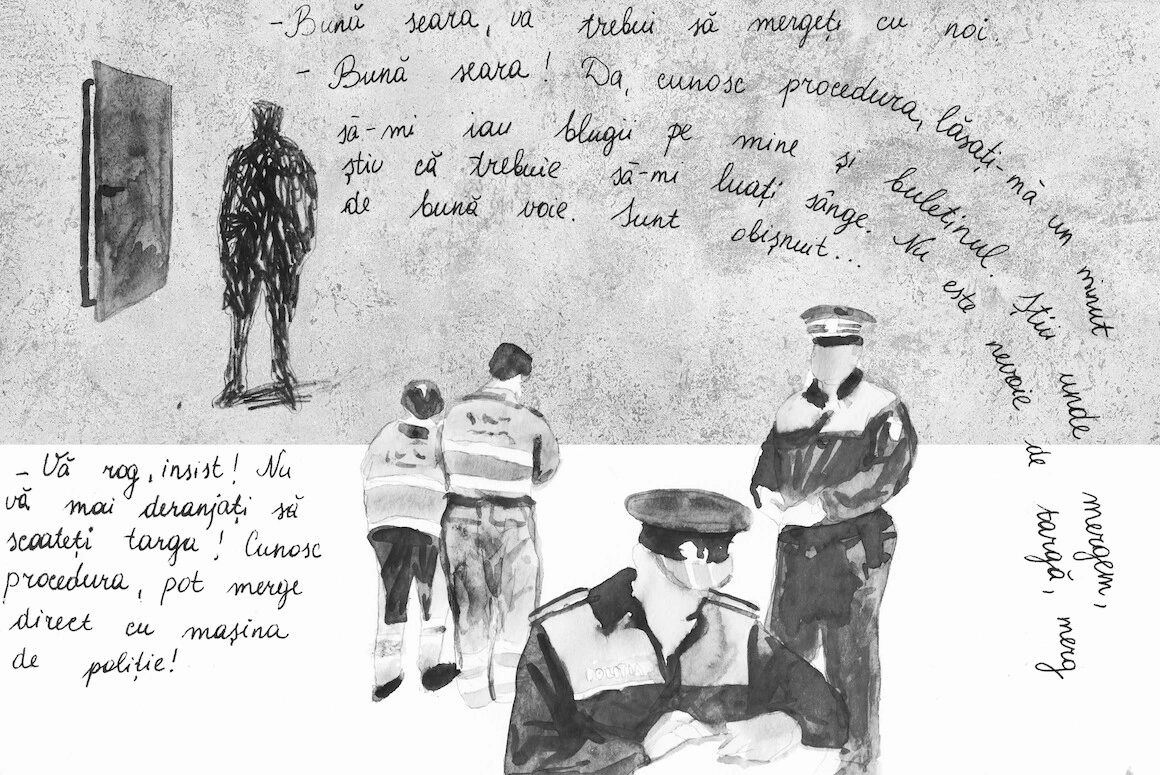 -Bună seara, va trebui să mergeți cu noi.
- Bună seara! Da, cunosc procedura, lăsați-mă un minut
să-mi iau blugii pe mine și buletinul. Știu unde mergem,
știu că trebuie să-mi luați sânge. Nu este nevoie de targă, merg
de bună voie. Sunt obișnuit...
- Vă rog, insist! Nu
vă mai deranjați să
scoateți targa! Cunosc
procedura, pot merge
direct cu mașina
de poliție!